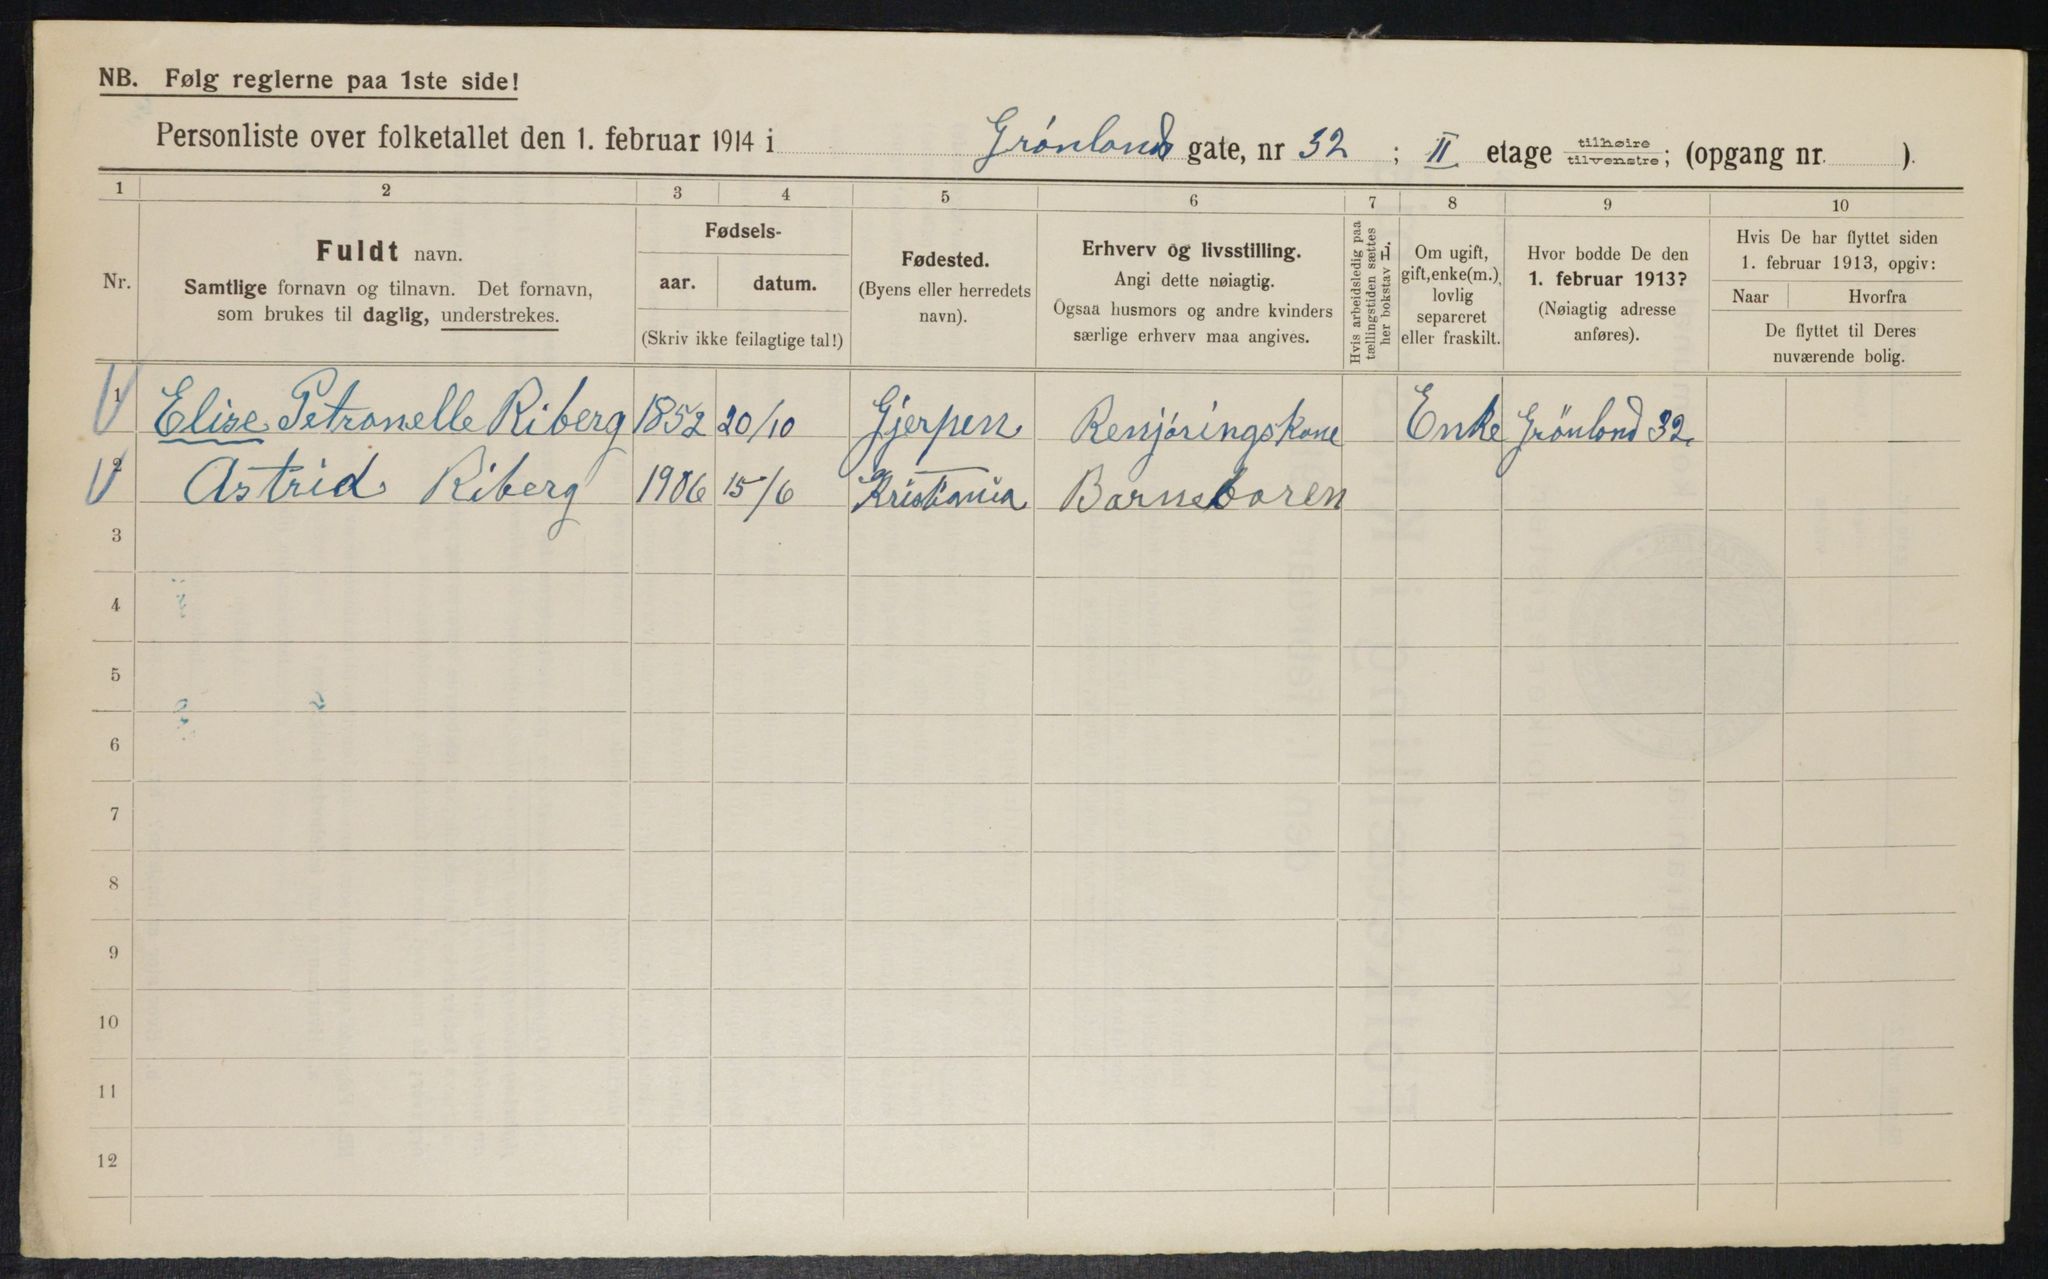 NB. Følg reglerne paa 1ste side!
Personliste over folketallet den 1. februar 1914 i Grönlands gate, nr 32 ; II etage tilhøire tilvenstre; (opgang nr. ).
1 2 3 4 5 6 7 8 9 10
Nr.
Fuldt navn.
Samtlige fornavn og tilnavn. Det fornavn,
som brukes til daglig, understrekes.
Fødsels-
aar. datum.
(Skriv ikke feilagtige tal!)
Fødested.
(Byens eller herredets
navn).
Erhverv og livsstilling.
Angi dette nøiagtig.
Ogsaa husmors og andre kvinders
særlige erhverv maa angives.
Hvis arbeidsledig paa
tællingstiden sættes
her bokstav L.
Om ugift,
gift, enke(m.),
lovlig
separeret
eller fraskilt.
Hvor bodde De den
1. februar 1913?
(Nøiagtig adresse
anføres).
Hvis De har flyttet siden
1. februar 1913, opgiv:
Naar Hvorfra
De flyttet til Deres
nuværende bolig.
1 Elise Petronelle Riberg 1852 20/10 Gjerpen Renjöringskone Enke Grönland 32.
2 Astrid Riberg 1906 15/6 Kristiania Barnebaren
3
4
5
6
7
8
9
10
11
12